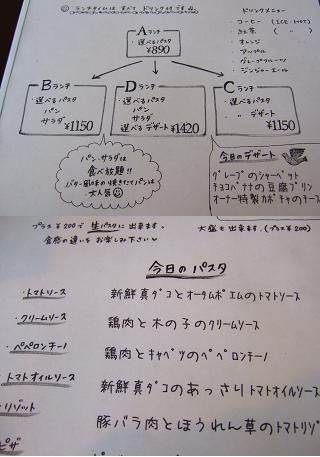 ◎ ランチタイムは すべて ドリンク付 です。
Aランチ
・選べるパスタ
¥890
ドリンクメニュー
・コーヒー (ICE・HOT)
・紅茶 ( 〃 )
・オレンジ
・アップル
・グレープフルーツ
・ジンジャーエール
Bランチ
・選べるパスタ
パン
サラダ
¥1150
Dランチ
・選べるパスタ
パン
サラダ
選べるデザート ¥1420
Cランチ
・選べるパスタ
〃 デザート
¥1150
パン・サラダは
食べ放題!!
バター風味の焼きたてパンは
大人気
今日のデザート
グレープのシャーベット
チョコバナナの豆腐プリン
オーナー特製カボチャのチーズ
プラス¥200で 生パスタに出来ます。
食感の違いをお楽しみ下さい♡
大盛も出来ます。(プラス¥200)
今日のパスタ
・トマトソース 新鮮真ダコとオータムポエムのトマトソース
・クリームソース 鶏肉と木の子のクリームソース
・ペペロンチーノ 鶏肉とキャベツのペペロンチーノ
・トマトオイルソース 新鮮真ダコのあっさりトマトオイルソース
・リゾット 豚バラ肉とほうれん草のトマトリゾ
ピザ